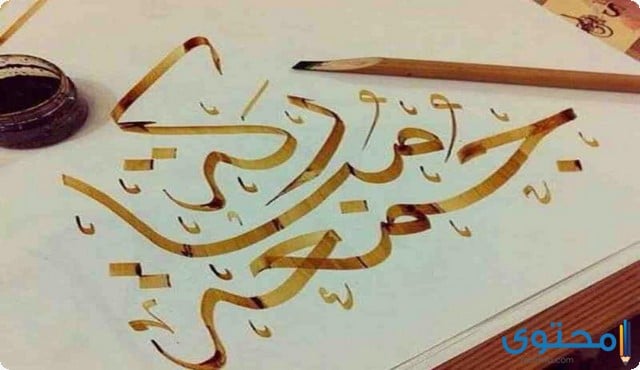 جمعة مباركة
محتوى